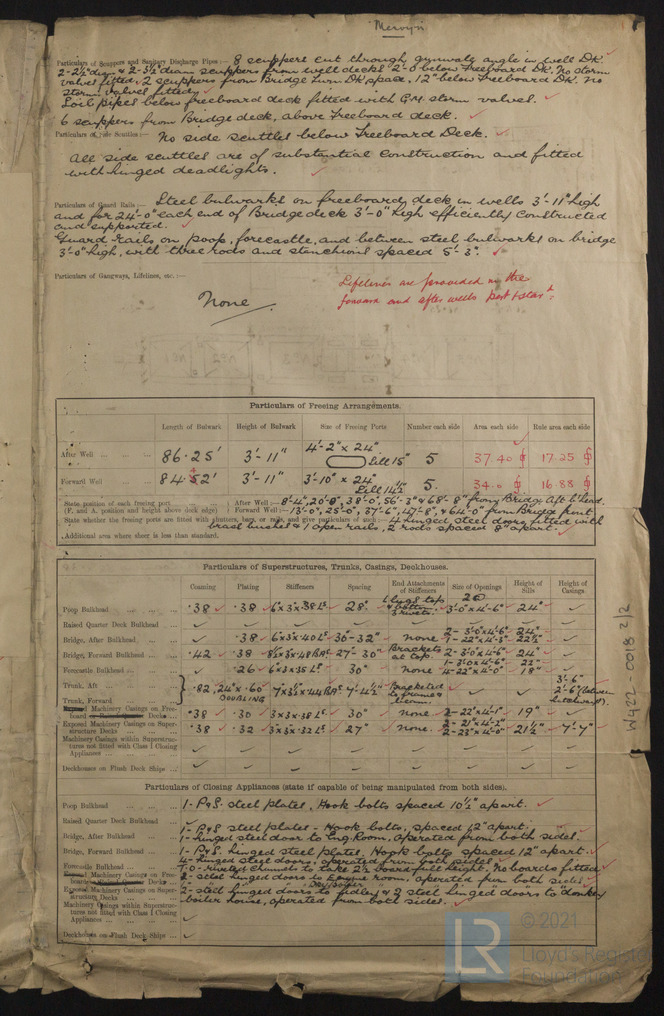 "Mervyn"
Particulars of Scuppers and Sanitary Discharge Pipes :— 8 scuppers cut through gunwale angle in well Dk.
2-2½" diam & 2-3½" diam scuppers from well decks 2'-0 below Freeboard Dk. No storm
valves fitted, 2 scuppers from Bridge Turn Dk. space, 12" below Freeboard Dk. No
storm valves fitted. ✓
Soil pipes below freeboard deck fitted with G.M. storm valves. ✓
6 scuppers from Bridge deck, above Freeboard deck. ✓
Particulars of Side Scuttles :— No side scuttles below Freeboard Deck. ✓
All side scuttles are of substantial construction and fitted
with hinged deadlights. ✓
Particulars of Guard Rails :— Steel bulwarks on freeboard deck in wells 3'-11" high
and for 24'-0" each end of Bridge deck 3'-0" high efficiently constructed
and supported. ✓
Guard rails on poop, forecastle, and between steel bulwarks on bridge
3'-0" high, with three rods and stenchions spaced 5'-3". ✓
Particulars of Gangways, Lifelines, etc. :—
None.
Lifelines are provided in the
forward and after wells port & star^d.
Particulars of Freeing Arrangements.
Length of Bulwark Height of Bulwark Size of Freeing Ports Number each side Area each side Rule area each side
After Well 86.25' 3'-11" 4'-2" x 24" Sill 15" 5 37.40 17.25
Forward Well 84.52' 3'-11" 3'-10" x 24" Sill 14½" 5. 34.0 16.88
State position of each freeing port After Well :— 8'-4", 20'-8", 38'-0", 56'-3" & 68'-8" from Bridge Aft b'head.
(F. and A. position and height above deck edge) Forward Well :— 13'-0", 25'-0", 37'-6", 47'-8", & 64'-0" from Bridge front
State whether the freeing ports are fitted with shutters, bars, or rails, and give particulars of such :— 4 hinged steel doors fitted with
brass bushes & 1 open rails, 2 rods spaced 8" apart. ✓
Additional area where sheer is less than standard.
Particulars of Superstructures, Trunks, Casings, Deckhouses.
Coaming Plating Stiffeners Spacing End Attachments of Stiffeners Size of Openings Height of Sills Height of Casings
Poop Bulkhead .38 .38 6x3x.38 Ls 28" Lugs top & bottom 3 rivets. 3'-0"x4'-6" 24" ✓
Raised Quarter Deck Bulkhead ✓ ✓ ✓ ✓ ✓ ✓ ✓ ✓
Bridge, After Bulkhead ✓ .38 6x3x.40 Ls 30-32" none 2- 3'-0"x4'-6" 24" ✓
Bridge, Forward Bulkhead .42 .38 27"-30" Brackets at top. 2- 3'-0"x4'-6" 24" ✓
Forecastle Bulkhead ✓ .26 6x3x.35 Ls 30" none 4-22"x4'-0" 18" ✓
Trunk, Aft .82, 24"x.60 DOUBLING 7'-4½" Bracketed 3'-6"
Trunk, Forward
Machinery Casings on Freeboard Decks .38 .30 3x3x.38 Ls 30" none 2-22"x4'-1" 19" ✓
Exposed Machinery Casings on Superstructure Decks .38 .32 3x3x.32 Ls 27" none. 2- 21"x4'-2" 2-23"x4'-0" 21½" 7'-7"
Machinery Casings within Superstructures not fitted with Class I Closing Appliances ✓ ✓ ✓ ✓ ✓ ✓ ✓ ✓
Deckhouses on Flush Deck Ships ✓ ✓ ✓ ✓ ✓ ✓ ✓ ✓
Particulars of Closing Appliances (state if capable of being manipulated from both sides).
Poop Bulkhead 1- P&S. steel plates, Hook bolts spaced 10½" apart. ✓
Raised Quarter Deck Bulkhead ✓
Bridge, After Bulkhead 1- P&S steel plates - Hook bolts, spaced 12" apart. ✓
1- hinged steel door to Eng. Room, operated from both sides.
Bridge, Forward Bulkhead 1- P&S. hinged steel plates. Hook bolts spaced 12" apart. ✓
4- hinged steel doors, operated from both sides
Forecastle Bulkhead riveted channels to take 2½" board full height. No boards fitted
Machinery Casings on Freeboard Decks 2- steel hinged doors to Engine room, operated from both sides
Exposed Machinery Casings on Superstructure Decks 2- steel hinged doors to fidley & 2 steel hinged doors to donkey
boiler house, operated from both sides. ✓
Machinery Casings within Superstructures not fitted with Class I Closing Appliances ✓
Deckhouses on Flush Deck Ships ✓
W422-0018 2/2
© 2021
LR
Lloyd's Register
Foundation